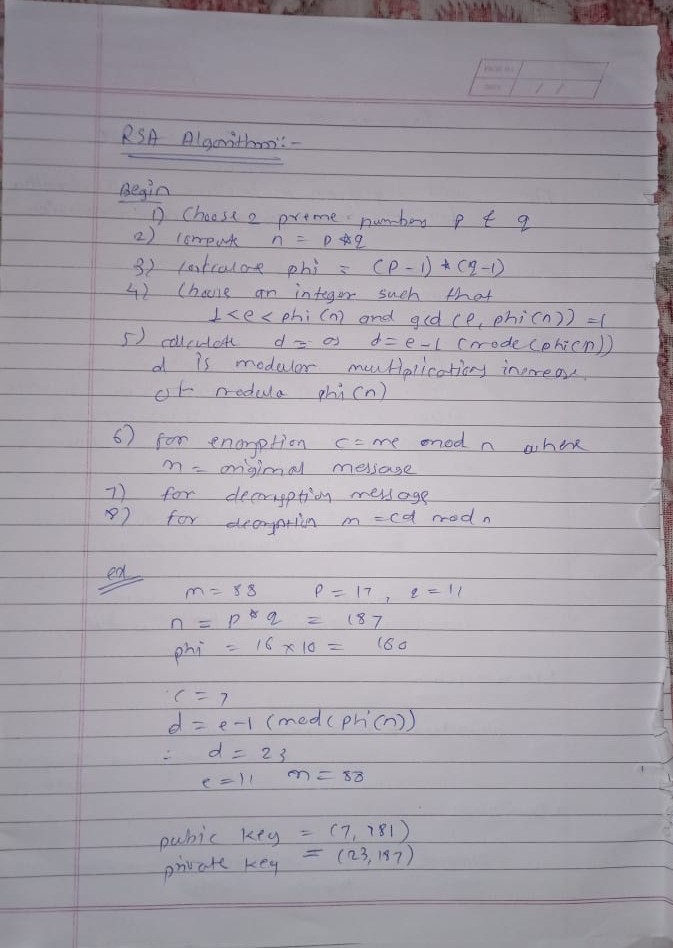 RSA Algorithm:-
Begin
1) Choose 2 preme numbers p & q
2) compute n = p * q
3) calculate phi = (p-1) * (q-1)
4) Choose an integer such that
1<e<phi(n) and gcd (e, phi(n)) =1
5) calculate d = as d = e-1 (mode(phi(n))
d is modular multiplication
of modula phi(n)
6) for encryption c = me mod n where
m = original message
7) for decryption message
8) for decryption m = cd mod n
ex
m = 88 P = 17, q = 11
n = p * q = 187
phi = 16 x 10 = 160
= 7
d = e-1 (med(phi(n))
d = 23
= 11 m = 88
pubic key = (7, 781)
private key = (23, 187)